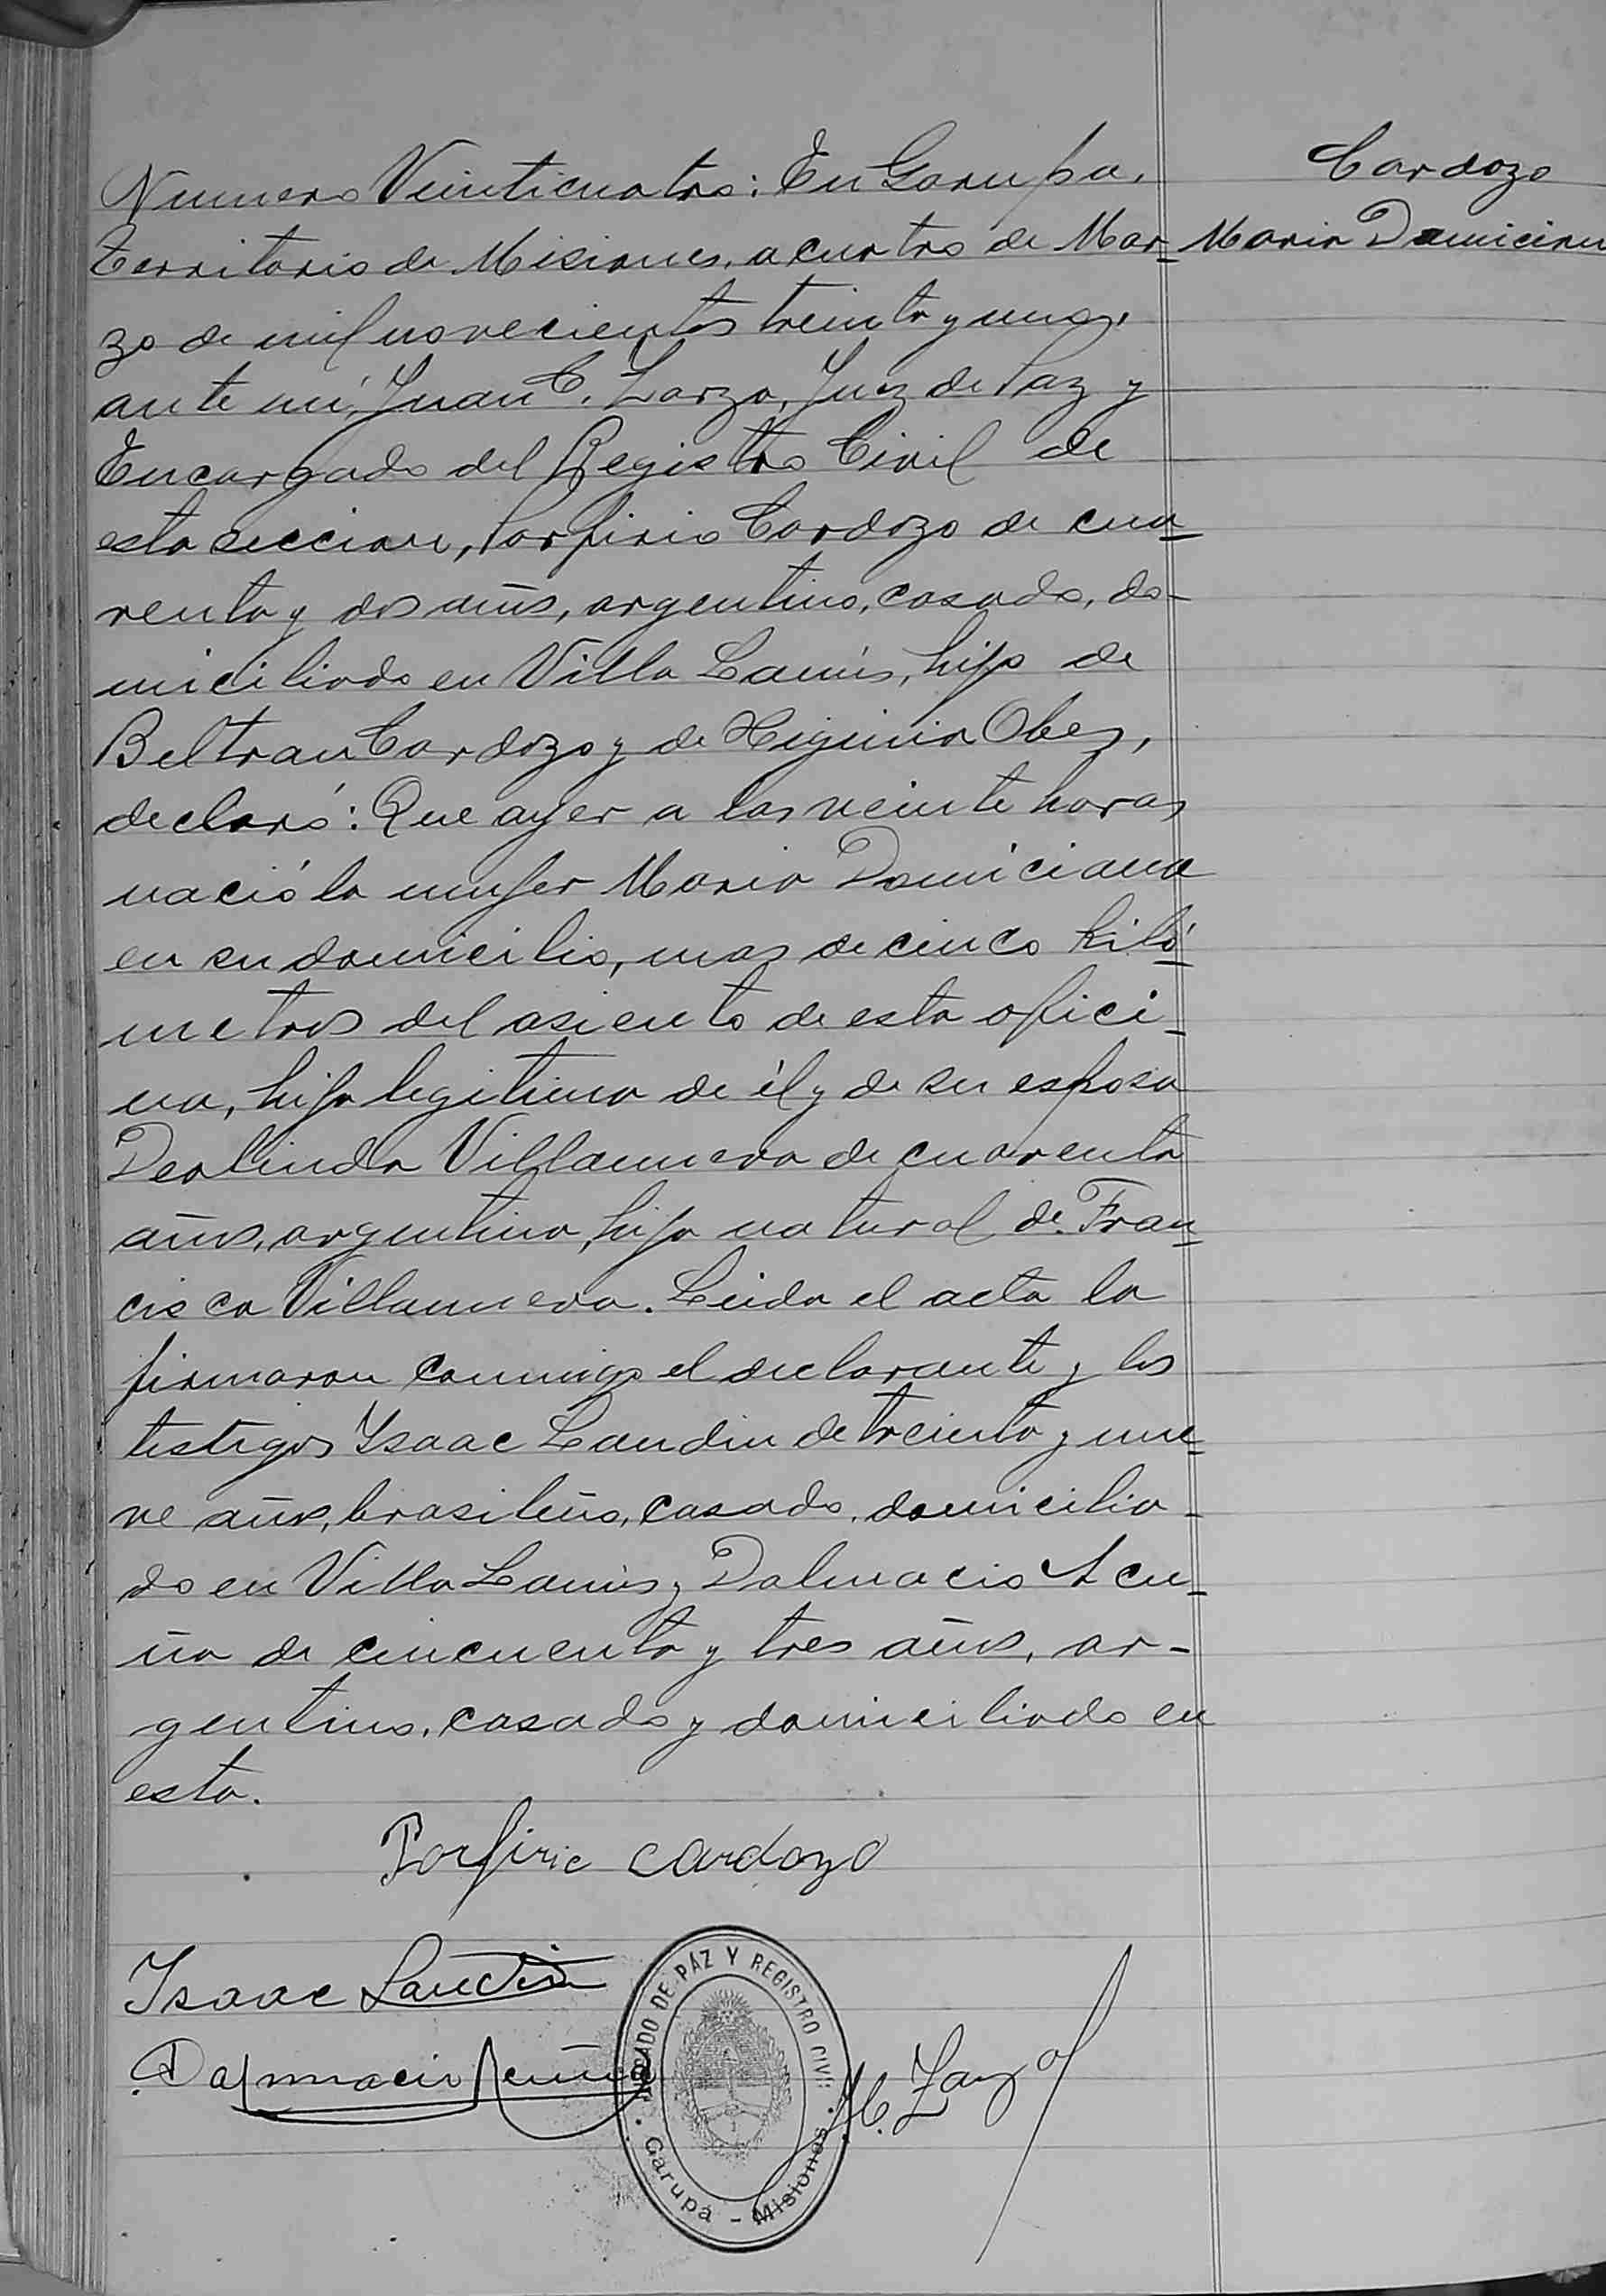 Cardozo
Maria Domiciana
Numero Veinticuatro: En Garupa,
Territorio de Misiones, a cuatro de Mar-
zo de mil novecientos treinta y uno,
ante mí, Juan C. Zarza, Juez de Paz y
Encargado del Registro Civil de
esta seccion, Porfirio Cardozo de cua-
renta y dos años, argentino, casado, do-
miciliado en Villa Lanús, hijo de
Beltran Cardozo y de Higinia Obez,
declaró: Que ayer a las veinte horas
nació la mujer Maria Domiciana
en su domicilio, mas de cinco kiló-
metros del asiento de esta ofici-
na, hija legitima de él y de su esposa
Deolinda Villanueva de cuarenta
años, argentina, hija natural de Fran-
cisca Villanueva. Leida el acta la
firmaron conmigo el declarante y los
testigos Isaac Landin de treinta y nue-
ve años, brasileño, casado, domicilia-
do en Villa Lanus y Dalmacio Acu-
ña de cincuenta y tres años, ar-
gentino, casado y domiciliado en
esta.
Porfirio Cardozo
Isaac Landin
Dalmacio Acuña
JUZGADO DE PAZ Y REGISTRO CIVIL
Garupá - Misiones